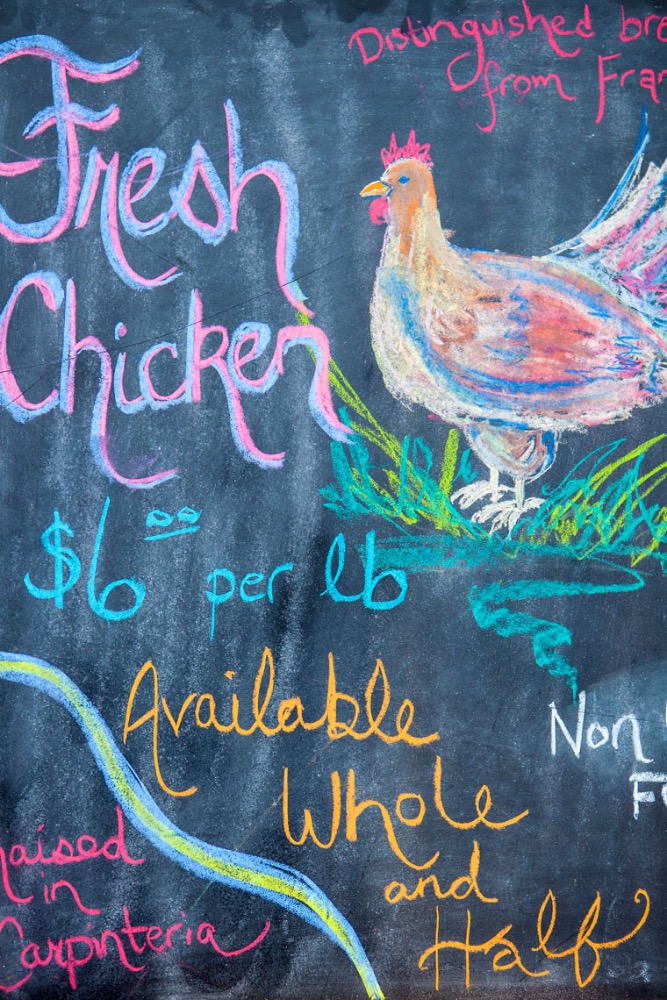 Distinguished
from
Fresh
Chicken
$6.00 per lb
Available
Whole
and
Half
Non
raised
in
Carpinteria